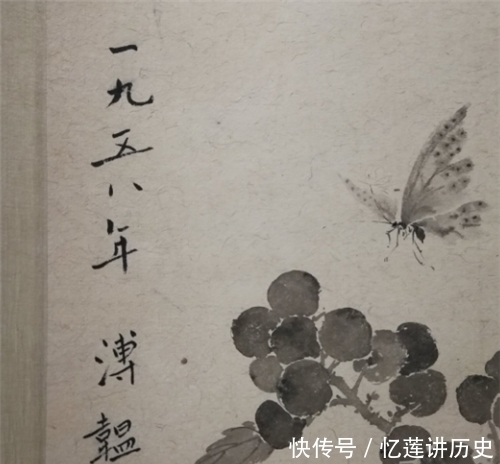 一九五八年
溥韞
快传号 / 忆莲讲历史